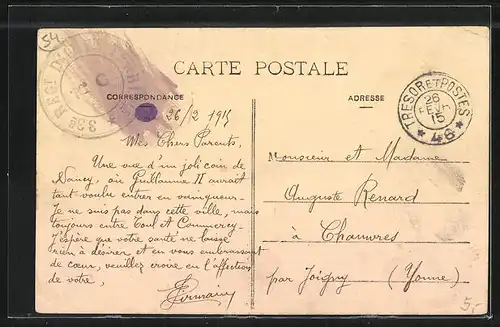 54
33e REGI
CARTE POSTALE
CORRESPONDANCE
ADRESSE
TRESOR ET POSTES
26
FEVR
15
* 46 *
26/2 1915
Mes Chers Parents,
Une vue d'un joli coin de
Nancy, où Guillaume II aurait
tant voulu entrer en vainqueur.
Je ne suis pas dans cette ville, mais
toujours entre Toul et Commercy.
J'espère que votre santé ne laisse
rien à désirer et en vous embrassant
de cœur, veuillez croire en l'affection
de votre,
Germain
Monsieur et Madame
Auguste Renard
à Chamvres
par Joigny (Yonne)
5,-